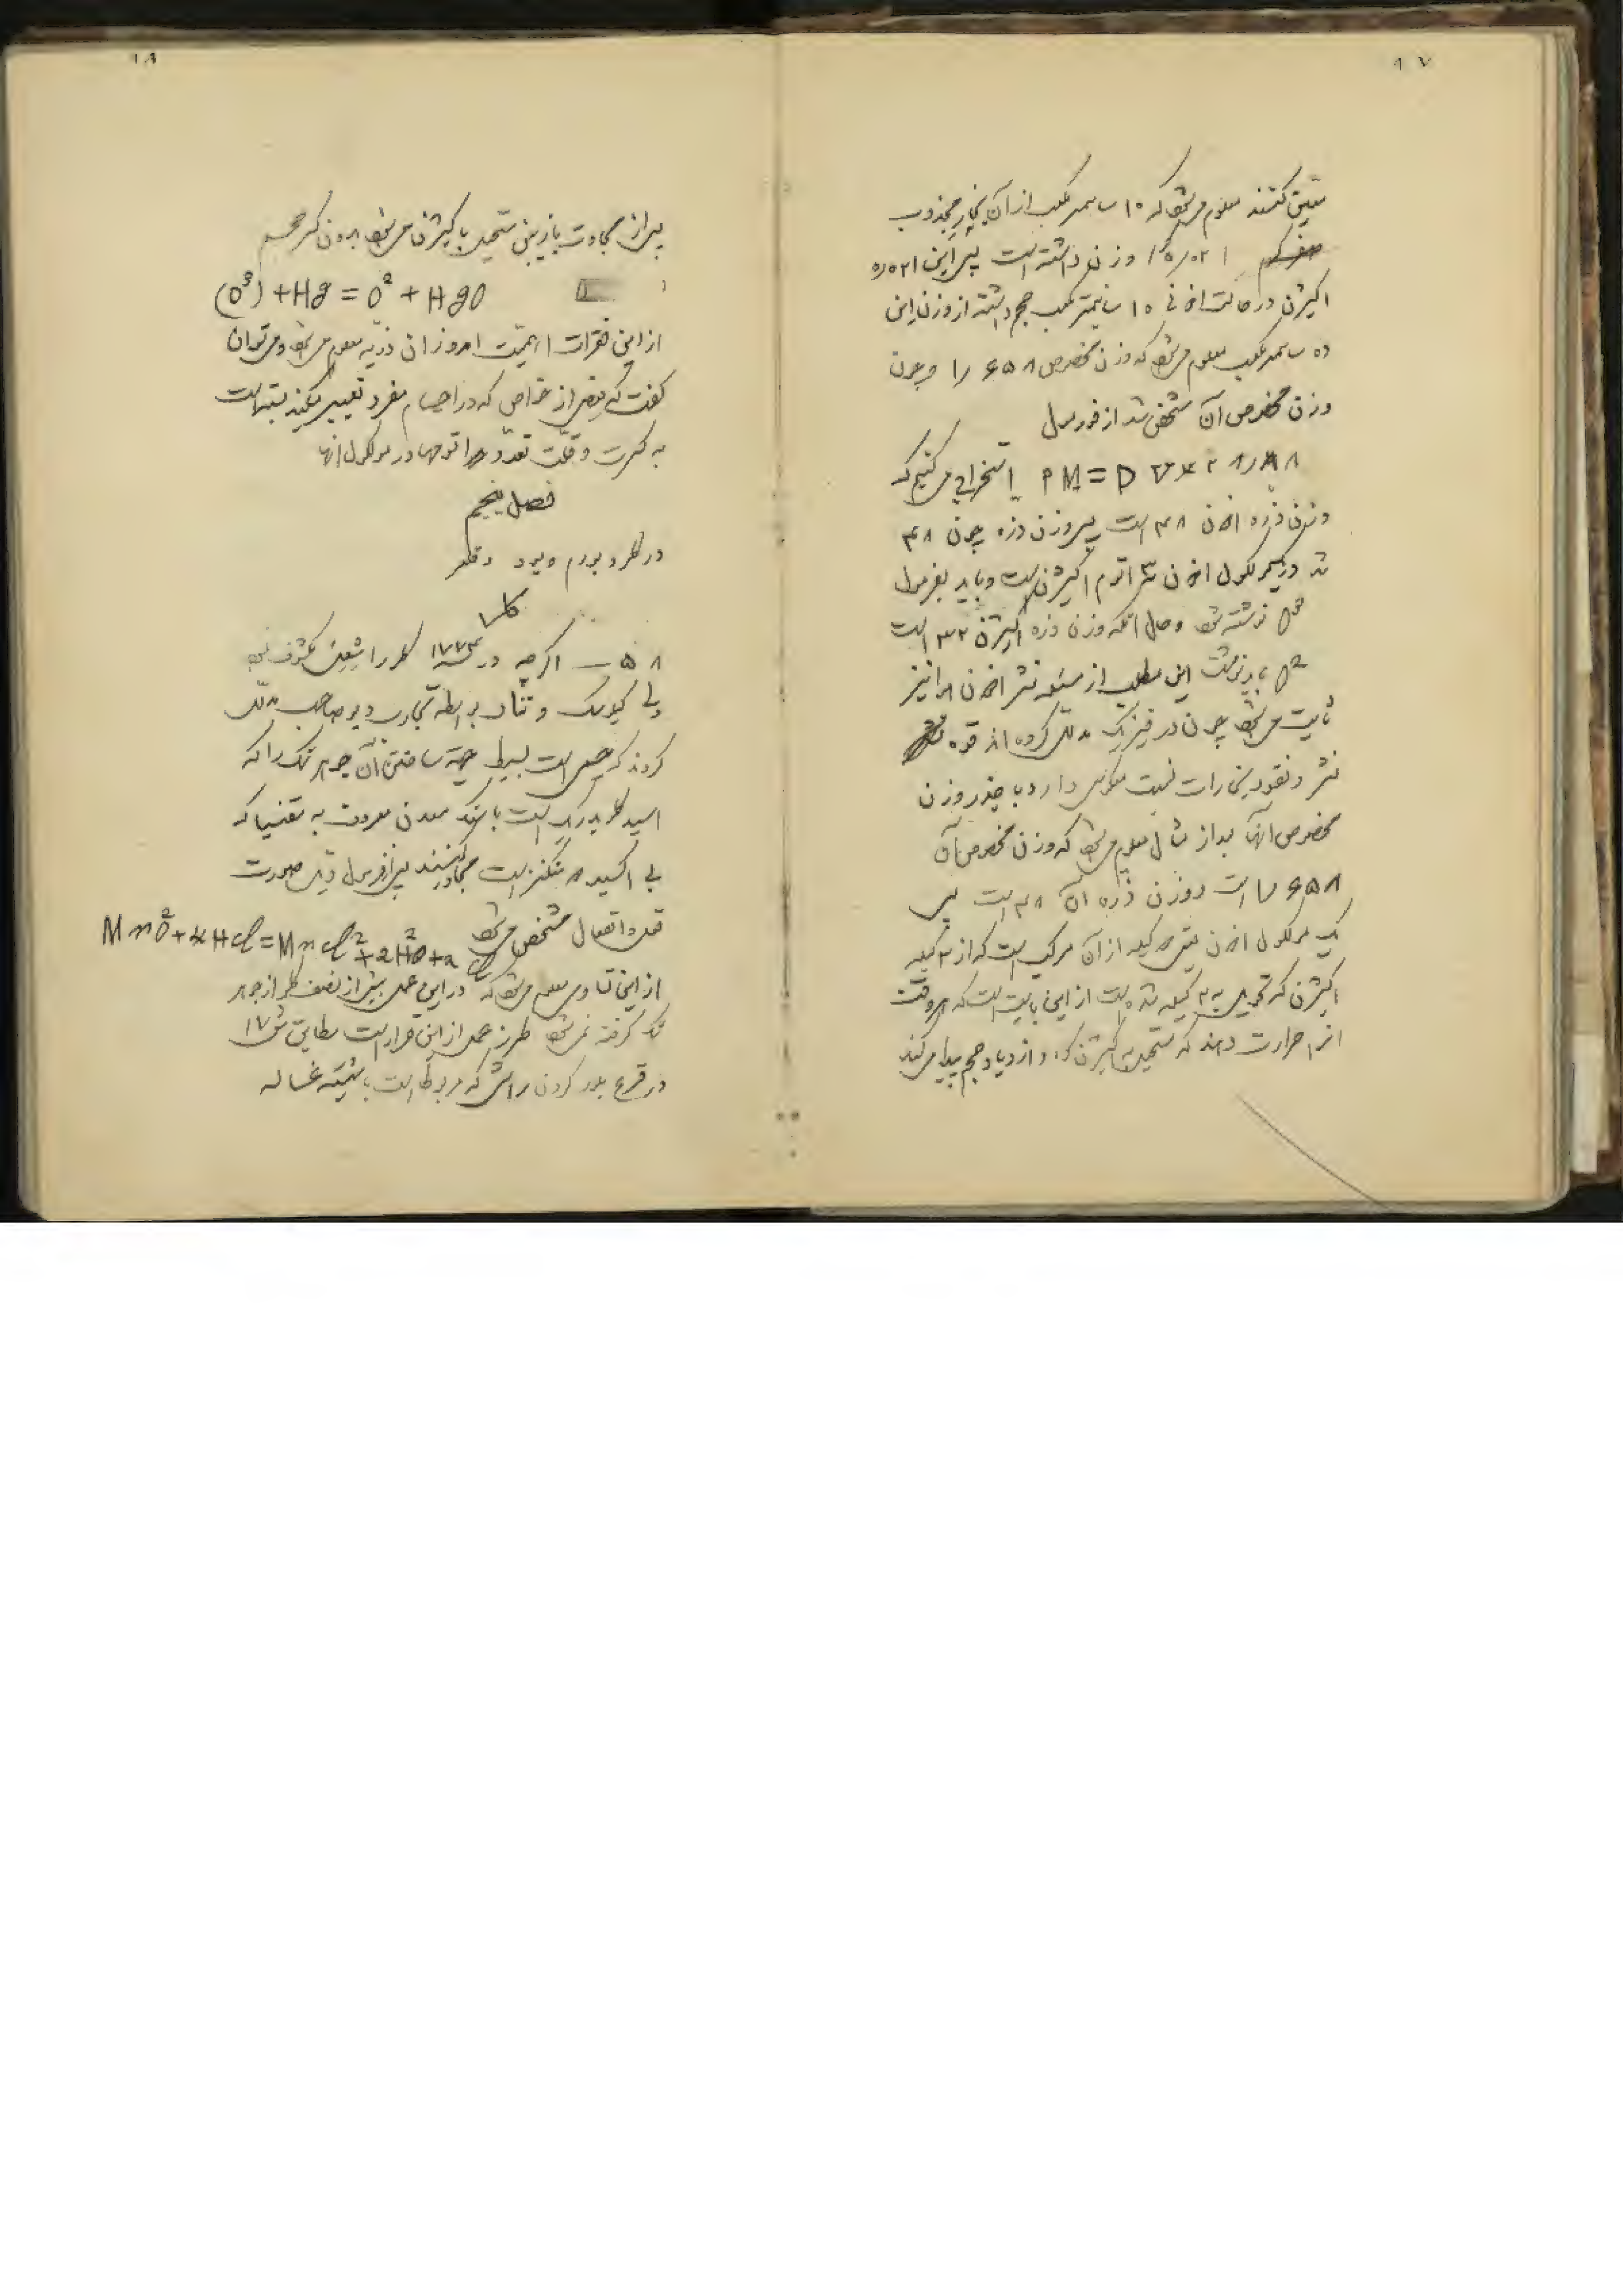 ۹۷
معین کنند معلوم میشود که ۱۰ سانتیمتر مکعب از آن بخار مجذوب
۰٫۰۲۱ وزن داشته است پس این ۰٫۰۲۱
اکسیژن در حالت ازنی ۱۰ سانتیمتر مکعب حجم داشته از وزن این
ده سانتیمتر مکعب معلوم میشود که وزن مخصوص ۱٫۶۵۸ و چون
وزن مخصوص آن مشخص شد از فورمول
PM = D × ۲۸٫۸۸ استخراج می کنیم که
وزن ذره ازن ۴۸ است پس وزن ذره چون ۴۸
شد در یک ملکول ازن ۳ اتوم اکسیژن است و باید بفرمول
O³ نوشته شود و حال آنکه وزن ذره اکسیژن ۳۲ است
O² باید نوشت این مطلب از مسئله نشر ازن را نیز
ثابت میشود چون در فیزیک مدلل کرده اند قوه
نشر و نفوذ بخارات نسبت معکوس دارد با جذر وزن
مخصوص آنها بعد از مثال معلوم میشود که وزن مخصوص آن
۱٫۶۵۸ است و وزن ذره آن ۴۸ است پس
یک ملکول ازن یعنی ۲ کیله از آن مرکب است که از ۳ کیله
اکسیژن که تحویل به ۲ کیله شده است از این بابت است که هر وقت
آنرا حرارت دهند که مستحیل به اکسیژن شود ازدیاد حجم پیدا می کند
۹۸
پس از مجاورت با زیبق مستحیل با کسیژن میشود بدون کسر حجم
(O³) + Hg = O² + HgO
از این فقرات اهمیت امروز اوزان ذریه معلوم میشود و میتوان
گفت که بعضی از خواص که در اجسام مفرد تغییر میکند بسته است
به کثرت و قلت تعدد اتومها در مولکول آنها
فصل پنجم
در کلر و برم و ید و فلئر
کلر
۵۸ — اگر چه در سنه ۱۷۷۴ کلر را شیل مکشوف نمود
ولی گیلوساک و تنار بواسطه تجارب دیوی صاحب مدلل
کردند که جسمی است بسیط جهة ساختن آن جوهر نمک را که
اسید کلریدریک است با سنگ معدن معروف به مغنیسا که
بی اکسید منگنز است مجاور کنند پس از فرمول ذیل صورت
فعل و انفعال مشخص میشود MnO² + 4HCl = MnCl² + 2H²O + 2Cl
از این تساوی معلوم میشود که در این عمل بیش از نصف کلر از جوهر
نمک گرفته نمی شود طرز عمل از این قرار است مطابق ش ۱۷
در قرع بلور کردن دراشی که مربوط است با شیشه غساله